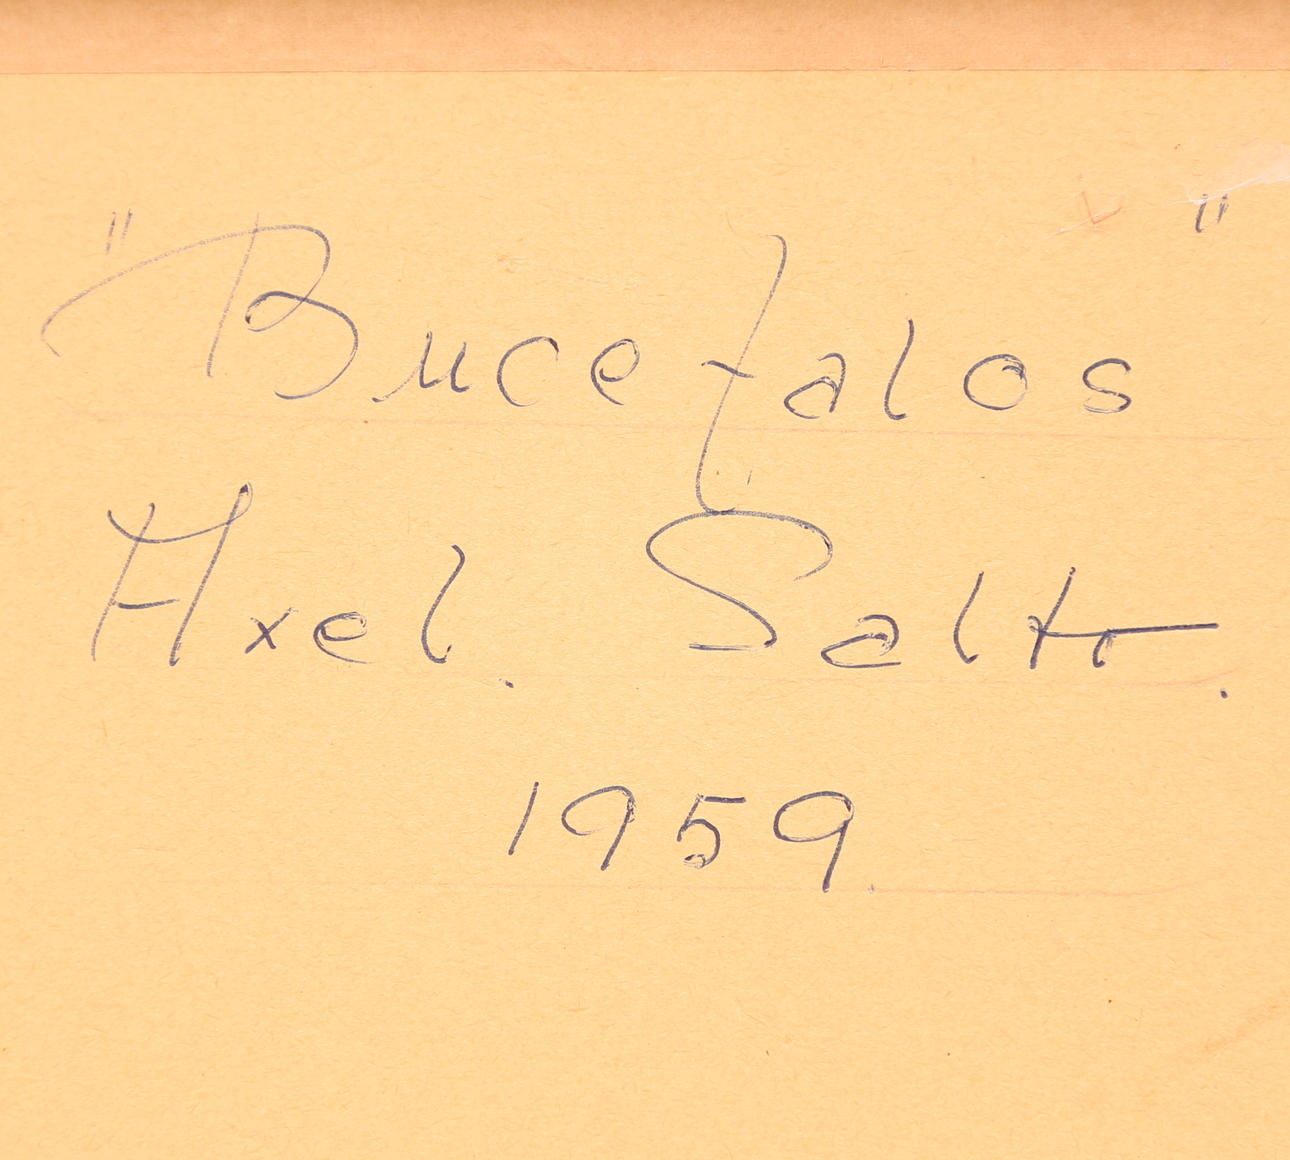 "Bucefalos"
Axel. Salto.
1959.